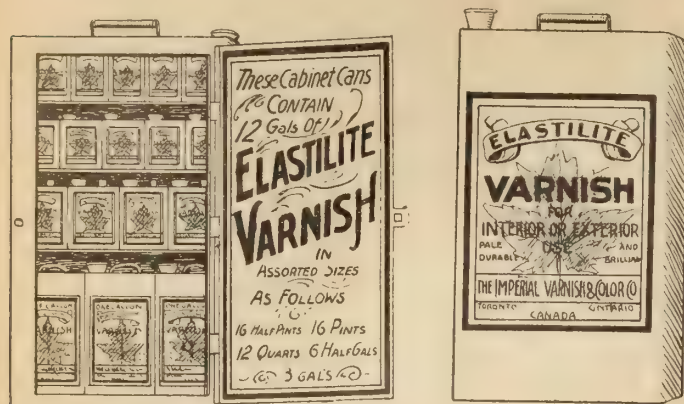 These Cabinet Cans
CONTAIN
12 Gals Of
ELASTILITE
VARNISH
IN
ASSORTED SIZES
AS FOLLOWS
16 HALF PINTS 16 PINTS
12 QUARTS 6 HALF GALS
3 GALS
ONE GALLON
VARNISH
VARNISH
VARNISH
ELASTILITE
VARNISH
FOR
INTERIOR OR EXTERIOR
USE
PALE AND
DURABLE BRILLIAN
THE IMPERIAL VARNISH & COLOR CO
TORONTO ONTARIO
CANADA